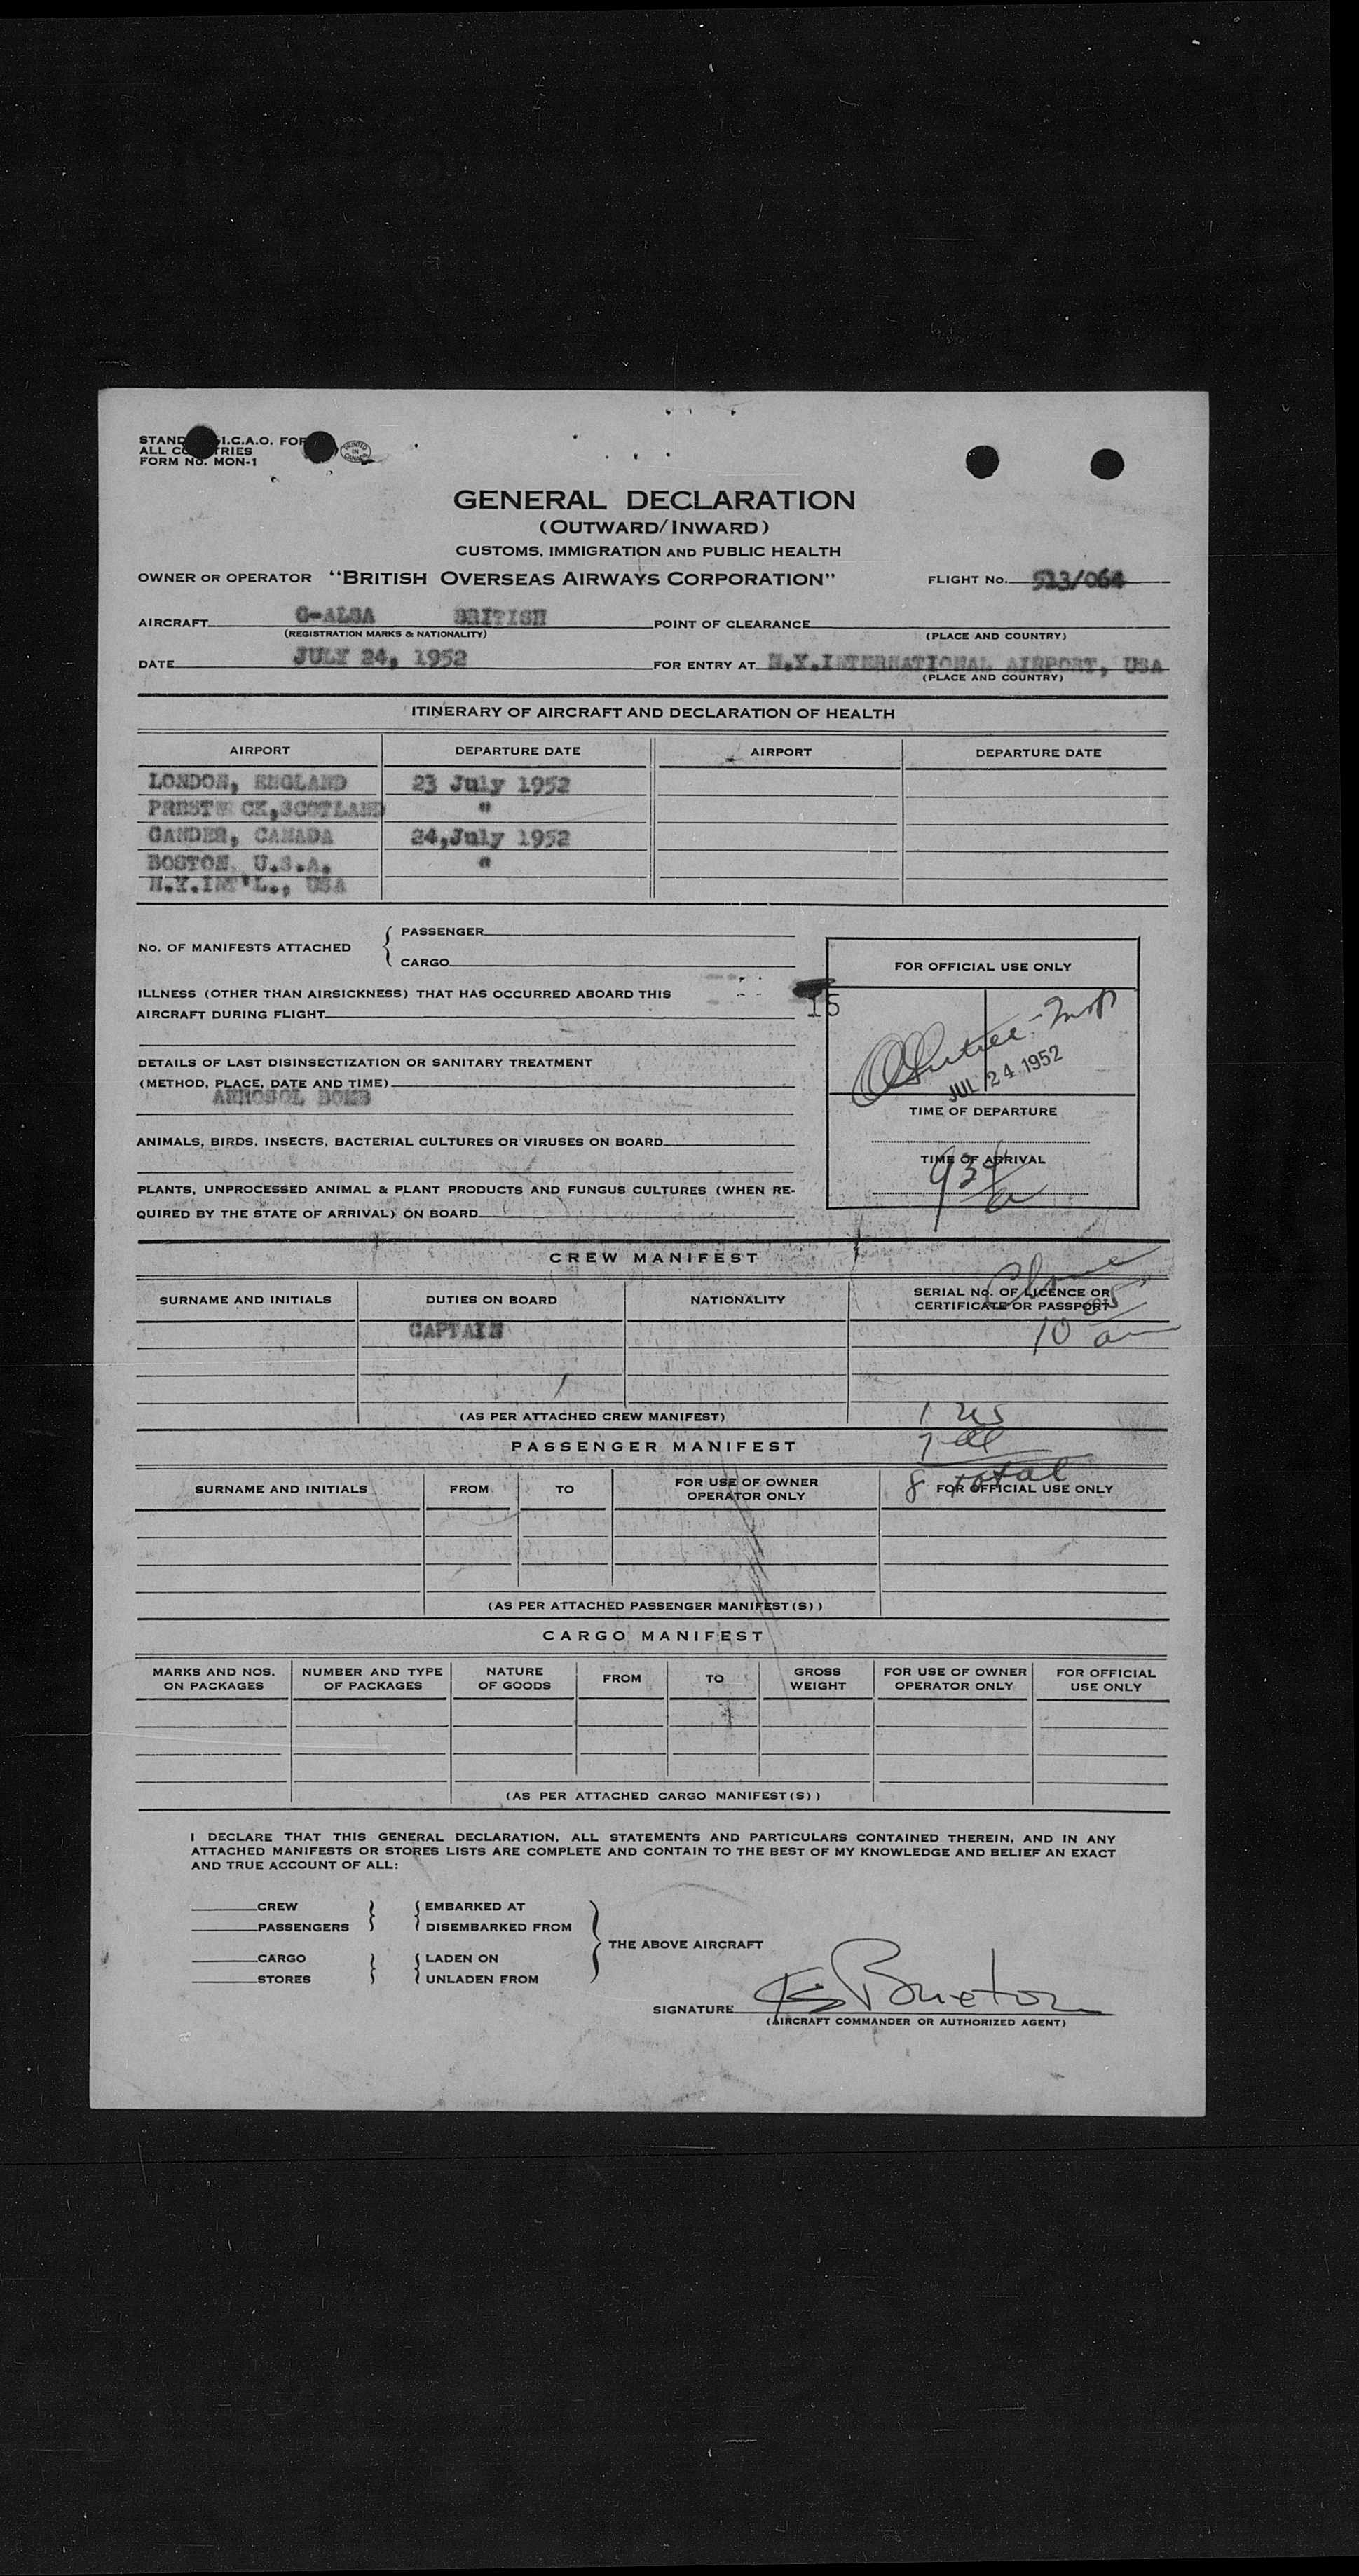 STAND I.C.A.O. FOR
ALL CO TRIES
FORM No. MON-1
PRINTED IN CANADA
GENERAL DECLARATION
(OUTWARD/INWARD)
CUSTOMS, IMMIGRATION AND PUBLIC HEALTH
OWNER OR OPERATOR "BRITISH OVERSEAS AIRWAYS CORPORATION" FLIGHT No. 513/064
AIRCRAFT G-ALSA BRITISH POINT OF CLEARANCE
(REGISTRATION MARKS & NATIONALITY) (PLACE AND COUNTRY)
DATE JULY 24, 1952 FOR ENTRY AT N.Y.INTERNATIONAL AIRPORT, USA
(PLACE AND COUNTRY)
ITINERARY OF AIRCRAFT AND DECLARATION OF HEALTH
AIRPORT DEPARTURE DATE AIRPORT DEPARTURE DATE
LONDON, ENGLAND 23 July 1952
PRESTW CK,SCOTLAND "
GANDER, CANADA 24,July 1952
BOSTON, U.S.A. "
N.Y.INT'L., USA
No. OF MANIFESTS ATTACHED { PASSENGER
CARGO
ILLNESS (OTHER THAN AIRSICKNESS) THAT HAS OCCURRED ABOARD THIS
AIRCRAFT DURING FLIGHT
DETAILS OF LAST DISINSECTIZATION OR SANITARY TREATMENT
(METHOD, PLACE, DATE AND TIME)
AEROSOL BOMB
ANIMALS, BIRDS, INSECTS, BACTERIAL CULTURES OR VIRUSES ON BOARD
PLANTS, UNPROCESSED ANIMAL & PLANT PRODUCTS AND FUNGUS CULTURES (WHEN RE-
QUIRED BY THE STATE OF ARRIVAL) ON BOARD
FOR OFFICIAL USE ONLY
15
JUL 24 1952
TIME OF DEPARTURE
TIME OF ARRIVAL
CREW MANIFEST
SURNAME AND INITIALS DUTIES ON BOARD NATIONALITY SERIAL No. OF LICENCE OR
CERTIFICATE OR PASSPORT
CAPTAIN
10 05 am
(AS PER ATTACHED CREW MANIFEST)
1 us
7 al
8 total
PASSENGER MANIFEST
SURNAME AND INITIALS FROM TO FOR USE OF OWNER
OPERATOR ONLY FOR OFFICIAL USE ONLY
(AS PER ATTACHED PASSENGER MANIFEST(S))
CARGO MANIFEST
MARKS AND NOS.
ON PACKAGES NUMBER AND TYPE
OF PACKAGES NATURE
OF GOODS FROM TO GROSS
WEIGHT FOR USE OF OWNER
OPERATOR ONLY FOR OFFICIAL
USE ONLY
(AS PER ATTACHED CARGO MANIFEST(S))
I DECLARE THAT THIS GENERAL DECLARATION, ALL STATEMENTS AND PARTICULARS CONTAINED THEREIN, AND IN ANY
ATTACHED MANIFESTS OR STORES LISTS ARE COMPLETE AND CONTAIN TO THE BEST OF MY KNOWLEDGE AND BELIEF AN EXACT
AND TRUE ACCOUNT OF ALL:
CREW EMBARKED AT
PASSENGERS DISEMBARKED FROM
THE ABOVE AIRCRAFT
CARGO LADEN ON
STORES UNLADEN FROM
SIGNATURE Buxton
(AIRCRAFT COMMANDER OR AUTHORIZED AGENT)